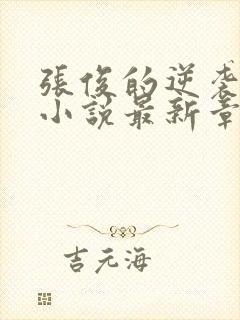 張俊的逆袭
小說最新章
吉元海